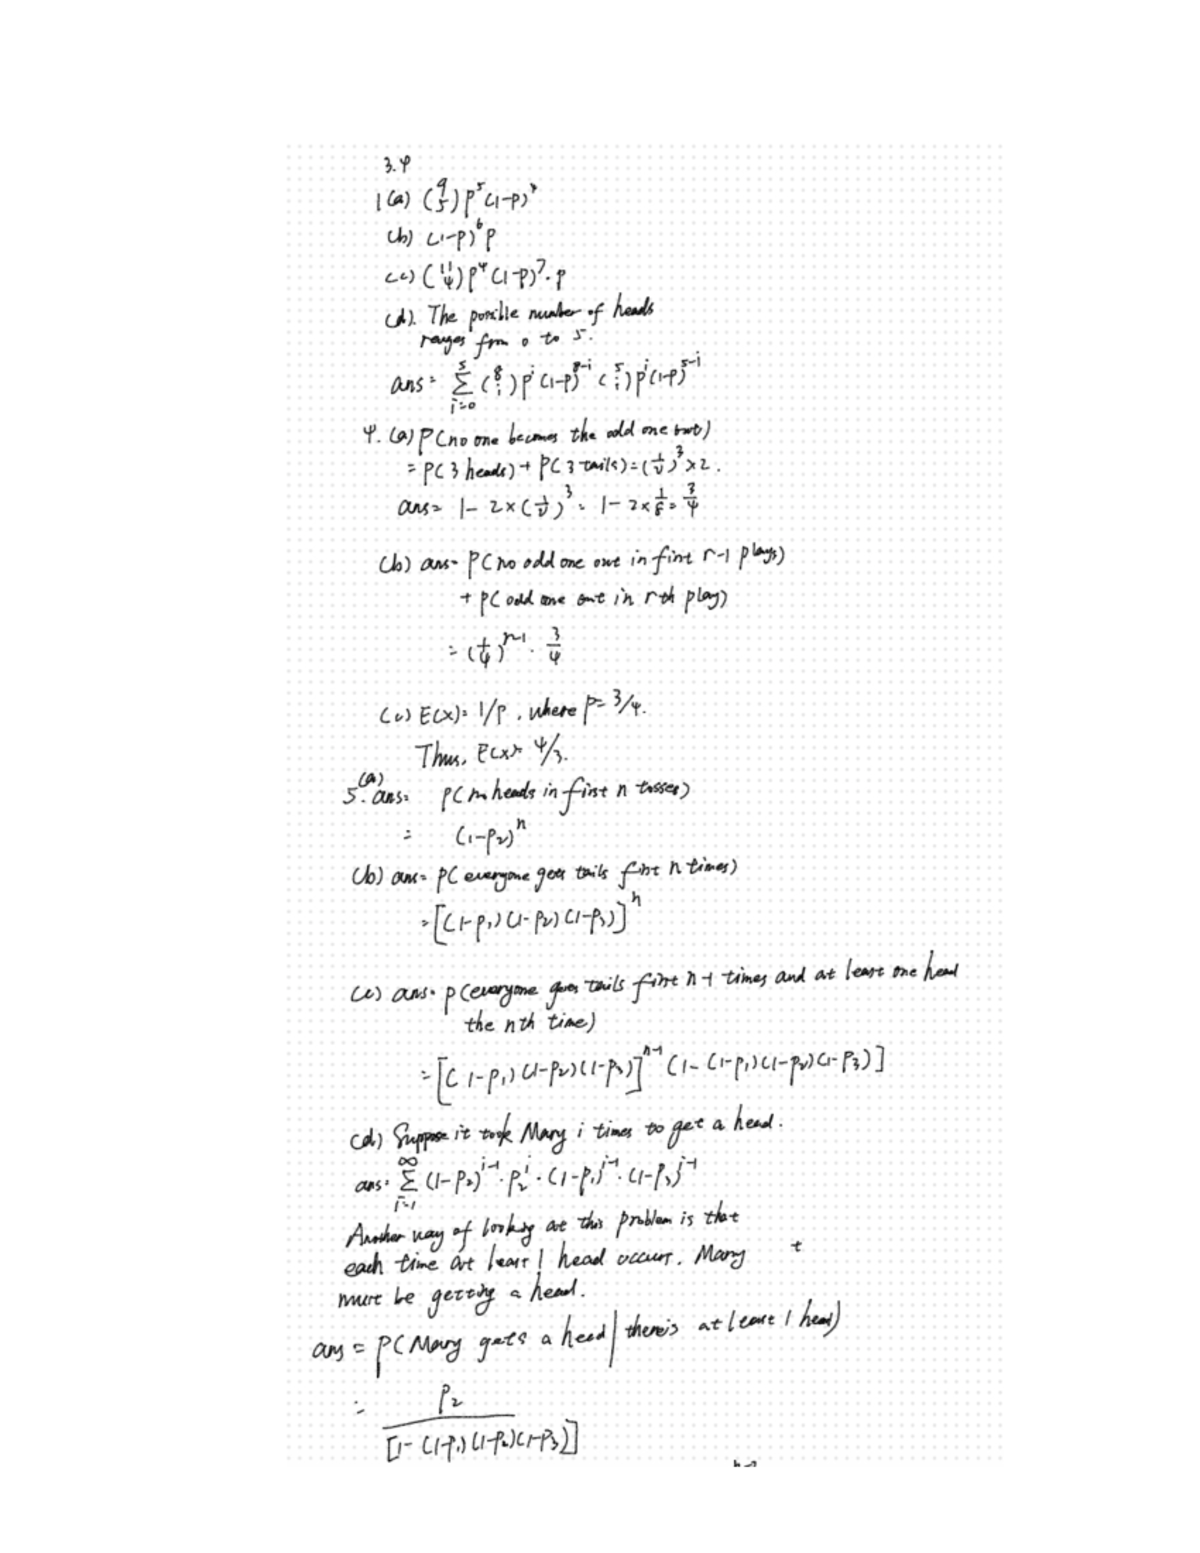 3.4
1(a) (9 5) p^5 (1-p)^4
(b) (1-p)^6 p
(c) (11 4) p^4 (1-p)^7 · p
(d). The possible number of heads
ranges from 0 to 5.
ans= Σ_{i=0}^{5} (8 i) p^i (1-p)^{8-i} (5 i) p^i (1-p)^{5-i}
4. (a) P(no one becomes the odd one out)
= P(3 heads) + P(3 tails) = (1/2)^3 × 2.
ans= 1 - 2×(1/2)^3 = 1 - 2×1/8 = 3/4
(b) ans= P(no odd one out in first r-1 plays)
+ P(odd one out in rth play)
= (1/4)^{r-1} · 3/4
(c) E(X)= 1/p, where p= 3/4.
Thus, E(X)= 4/3.
5.(a) ans= P(no heads in first n tosses)
= (1-p2)^n
(b) ans= P(everyone gets tails first n times)
= [(1-p1)(1-p2)(1-p3)]^n
(c) ans= P(everyone gets tails first n-1 times and at least one head
the nth time)
= [(1-p1)(1-p2)(1-p3)]^{n-1} (1-(1-p1)(1-p2)(1-p3)]
(d) Suppose it took Mary i times to get a head.
ans= Σ_{i=1}^{∞} (1-p2)^{i-1} · p2^i · (1-p1)^{i-1} · (1-p3)^{i-1}
Another way of looking at this problem is that
each time at least 1 head occurs. Mary t
must be getting a head.
ans = P(Mary gets a head | there's at least 1 head)
= p2 / [1-(1-p1)(1-p2)(1-p3)]